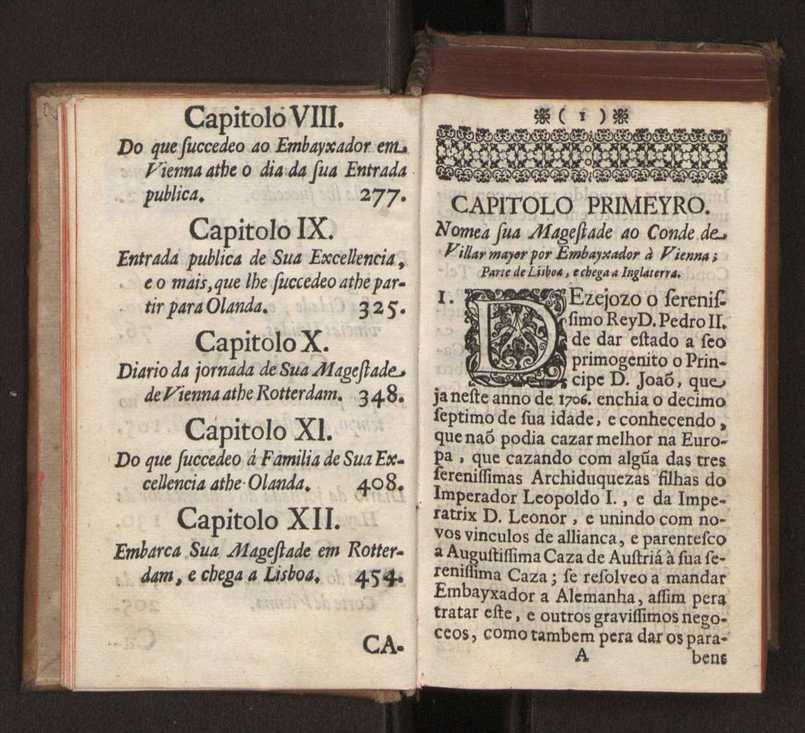 Capitolo VIII.
Do que ſuccedeo ao Embayxador em
Vienna athe o dia da ſua Entrada
publica. 277.
Capitolo IX.
Entrada publica de Sua Excellencia,
e o mais, que lhe ſuccedeo athe par-
tir para Olanda. 325.
Capitolo X.
Diario da jornada de Sua Mageſtade
de Vienna athe Rotterdam. 348.
Capitolo XI.
Do que ſuccedeo á Familia de Sua Ex-
cellencia athe Olanda. 408.
Capitolo XII.
Embarca Sua Mageſtade em Rotter-
dam, e chega a Lisboa. 454.
CA-
( 1 )
CAPITOLO PRIMEYRO.
Nomea ſua Mageſtade ao Conde de
Villar mayor por Embayxador à Vienna;
Parte de Lisboa, e chega a Inglaterra.
1. DEzejozo o ſereniſ-
ſimo Rey D. Pedro II.
de dar eſtado a ſeo
primogenito o Prin-
cipe D. Joaõ, que
ja neſte anno de 1706. enchia o decimo
ſeptimo de ſua idade, e conhecendo,
que naõ podia cazar melhor na Euro-
pa, que cazando com algũa das tres
ſereniſſimas Archiduquezas filhas do
Imperador Leopoldo I., e da Impe-
ratrix D. Leonor, e unindo com no-
vos vinculos de allianca, e parenteſco
a Auguſtiſſima Caza de Auſtriá à ſua ſe-
reniſſima Caza; ſe reſolveo a mandar
Embayxador a Alemanha, aſſim pera
tratar eſte, e outros graviſſimos nego-
ceos, como tambem pera dar os para-
A bens